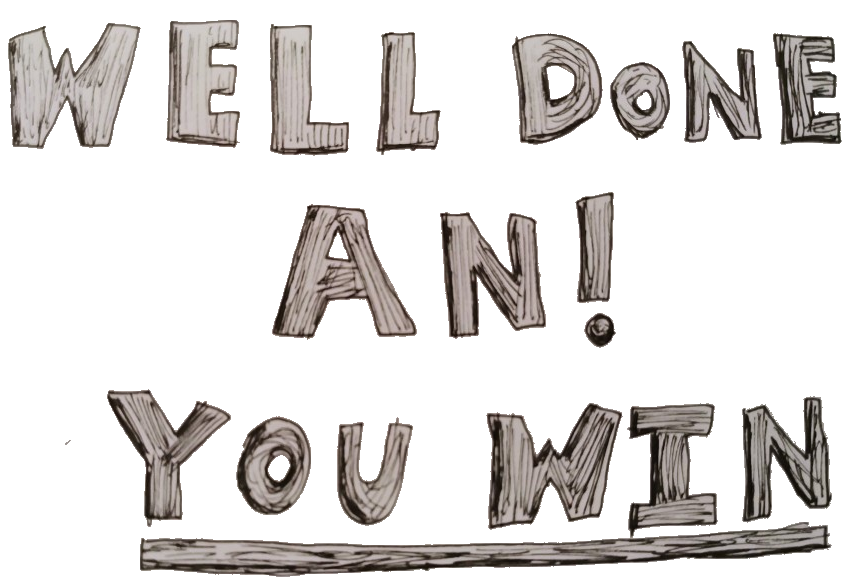 WELL DONE
AN!
YOU WIN